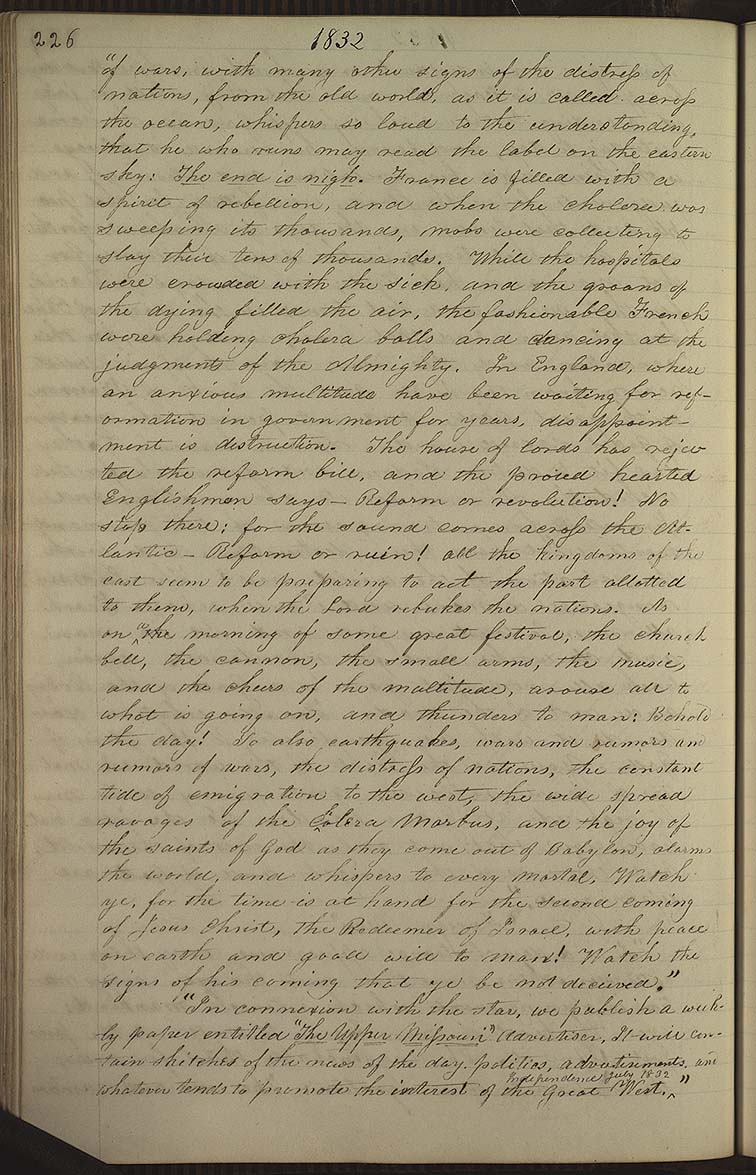 226 1832
"of wars, with many other signs of the distress of
nations, from the old world, as it is called across
the ocean, whispers so loud to the understanding,
that he who runs may read the label on the eastern
sky: The end is nigh. France is filled with a
spirit of rebellion, and when the cholera was
sweeping its thousands, mobs were collecting to
slay their tens of thousands. While the hospitals
were crowded with the sick, and the groans of
the dying filled the air, the fashionable French
were holding cholera balls and dancing at the
judgments of the Almighty. In England, where
an anxious multitude have been waiting for ref-
ormation in government for years, disappoint-
ment is distruction. The house of lords has rejec
ted the reform bill, and the proud hearted
Englishmen says— Reform or revolution! No
stop there; for the sound comes across the At-
lantic— Reform or ruin! all the kingdoms of the
east seem to be preparing to act the part allotted
to them, when the Lord rebukes the nations. As
on the morning of some great festival, the church
bell, the cannon, the small arms, the music,
and the cheers of the multitude, arouse all to
what is going on, and thunders to man: Behold
the day! So also earthquakes, wars and rumors and
rumors of wars, the distress of nations, the constant
tide of emigration to the west, the wide spread
ravages of the Colera Morbus, and the joy of
the saints of God as they come out of Babylon, alarms
the world, and whispers to every mortal, Watch
ye, for the time is at hand for the second coming
of Jesus Christ, the Redeemer of Israel, with peace
on earth and good will to man! Watch the
signs of his coming that ye be not deceived."
"In connexion with the star, we publish a week-
ly paper entitled "The Upper Missouri" Advertiser, It will con-
tain skitches of the news of the day politics, advertisements, and
Independence July 1832
whatever tends to promote the interest of the Great West.^"